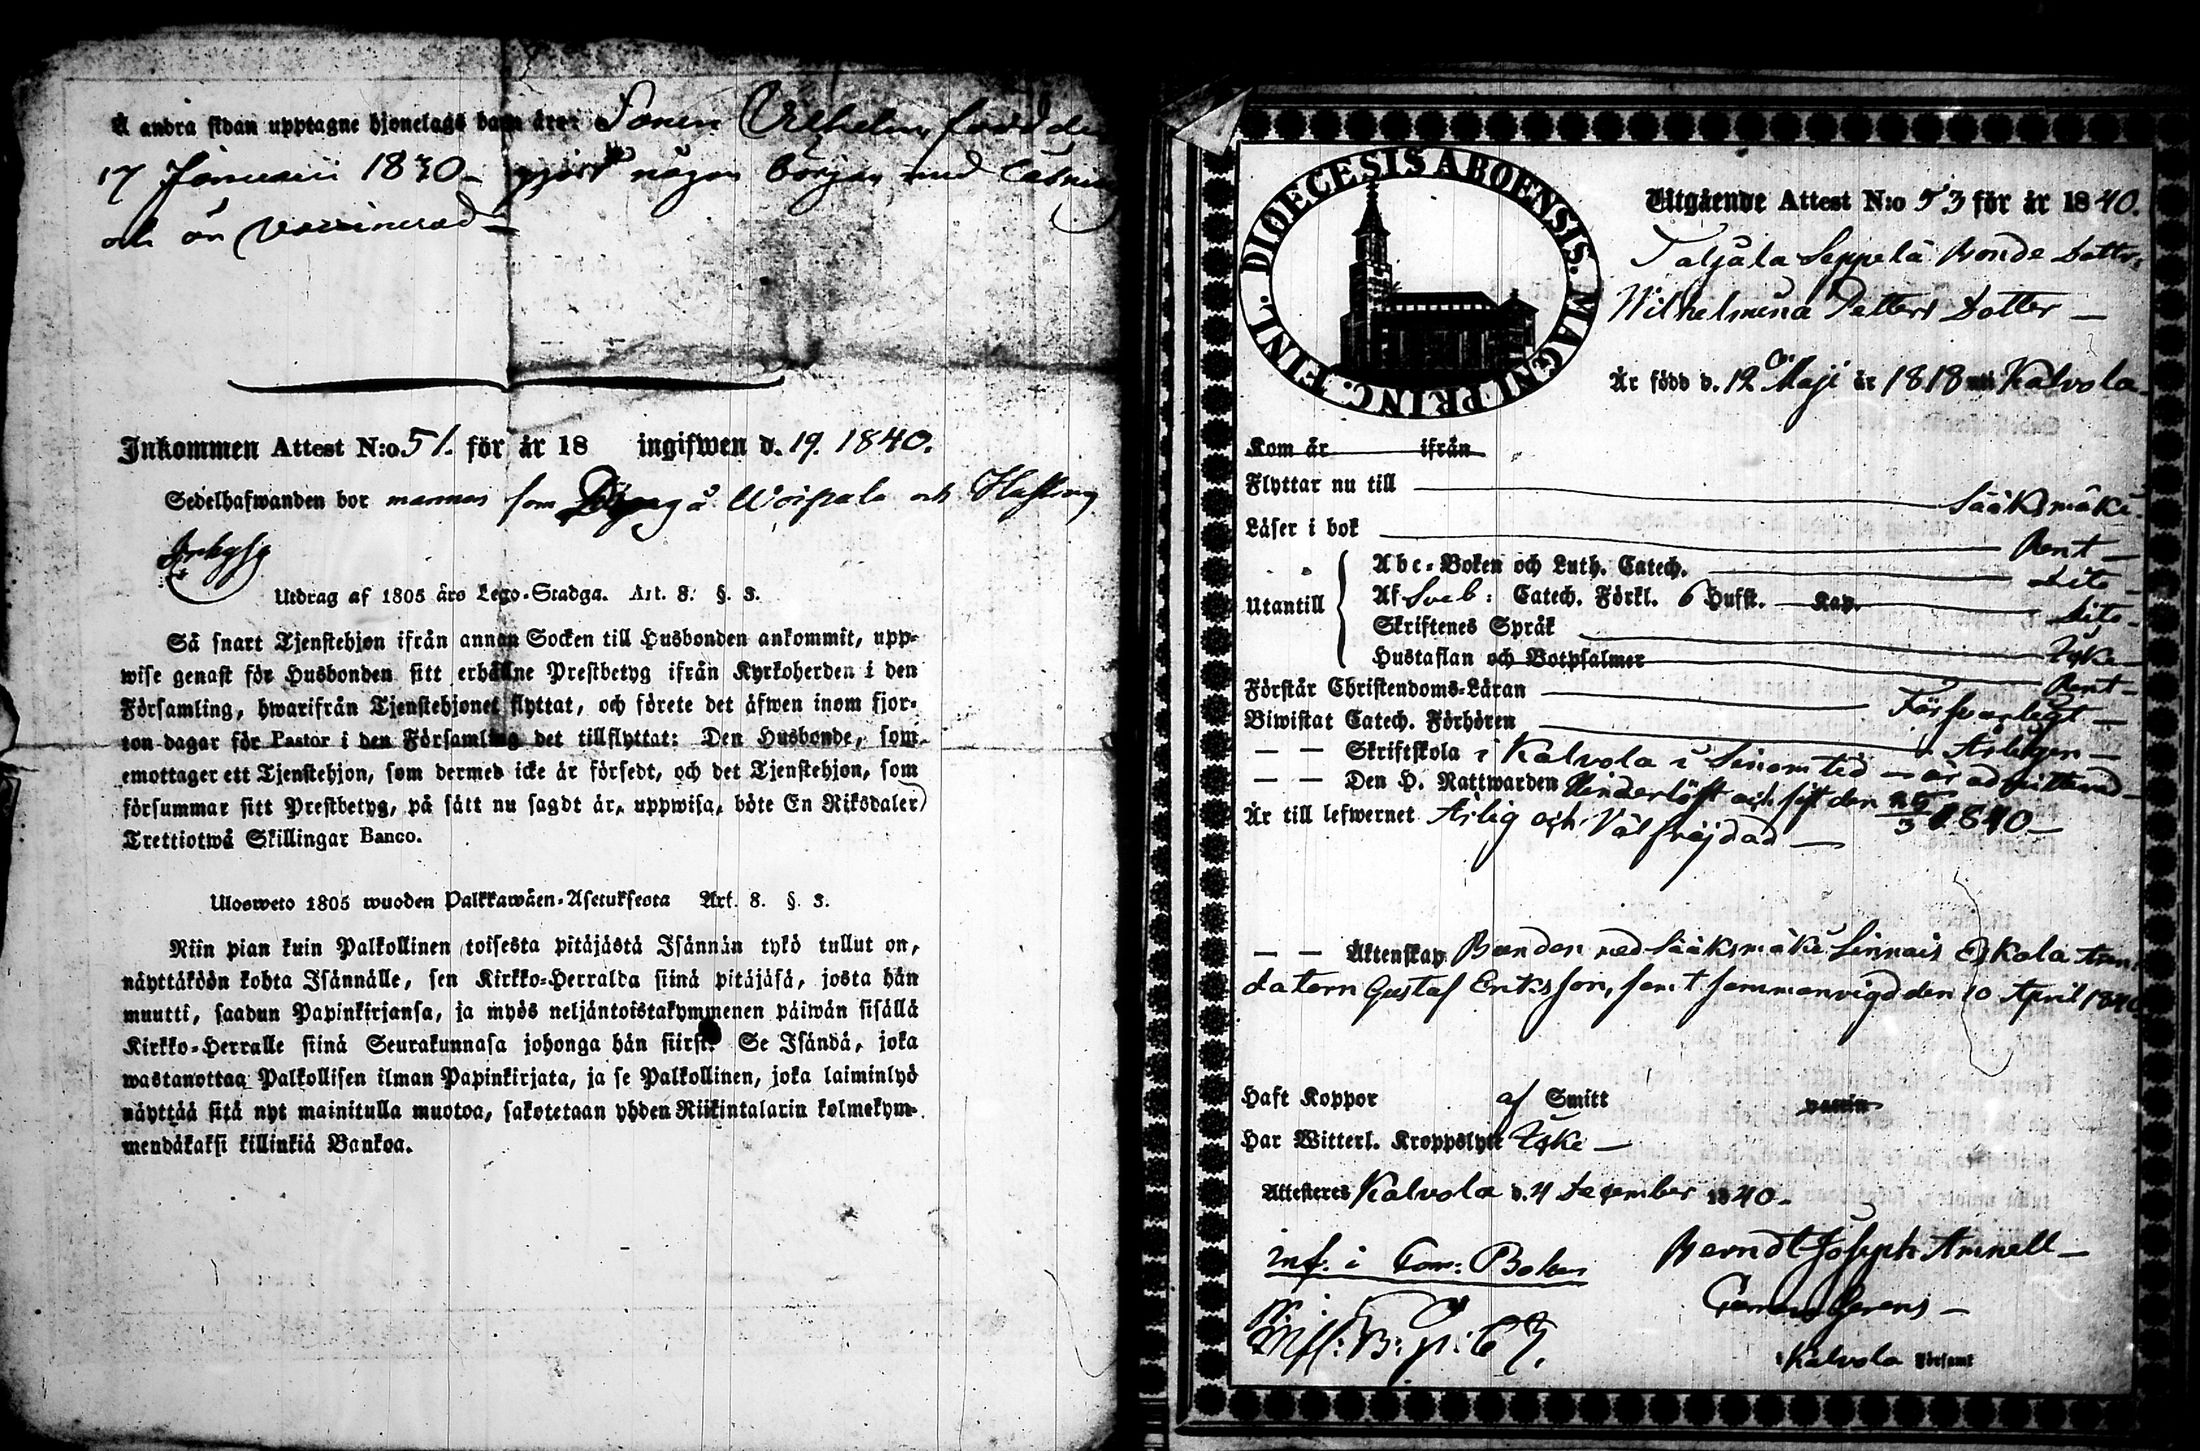 Å andra sidan upptagne hjonelags barn äro: Sonen Wilhelm, född den
17 Januarii 1830 – gjort någon början med läsning
och är vaccinerad –
Inkommen Attest N:o 51. för år 18 ingifwen d. 19. 1840.
Sedelhafwanden bor som å Woipala och
Utdrag af 1805 års Lego-Stadga. Art. 8. §. 3.
Så snart Tjenstehjon ifrån annan Socken till Husbonden ankommit, upp-
wise genast för Husbonden sitt erhållne Prestbetyg ifrån Kyrkoherden i den
Församling, hwarifrån Tjenstehjonet flyttat, och förete det äfwen inom fjor-
ton dagar för Pastor i den Församling det tillflyttat: Den Husbonde, som
emottager ett Tjenstehjon, som dermed icke är försedt, och det Tjenstehjon, som
försummar sitt Prestbetyg, på sätt nu sagdt är, uppwisa, böte En Riksdaler
Trettiotwå Skillingar Banco.
Ulosweto 1805 wuoden Palkkawäen-Asetuksesta Art. 8. §. 3.
Niin pian kuin Palkollinen toisesta pitäjästä Isännän tykö tullut on,
näyttäköön kohta Isännälle, sen Kirkko-Herralda siinä pitäjäsä, josta hän
muutti, saadun Papinkirjansa, ja myös neljäntoistakymmenen päiwän sisällä
Kirkko-Herralle siinä Seurakunnasa johonga hän siirsi. Se Isändä, joka
wastanottaa Palkollisen ilman Papinkirjata, ja se Palkollinen, joka laiminlyö
näyttää sitä nyt mainitulla muotoa, sakotetaan yhden Riikintalarin kolmekym-
mendäkaksi killinkiä Bankoa.
DIOECESIS ABOENSIS. MAGNI PRINC. FINL.
Utgående Attest N:o 53 för år 1840.
Taljala Seppelä Bonde Dottr:
Wilhelmina Petters Dotter –
Är född d. 12 Maji år 1818 uti Kalvola
Kom år ifrån
Flyttar nu till Sääksmäki.
Läser i bok Rent –
Abc-Boken och Luth. Catech. Dito –
Utantill Af Sveb: Catech. Förkl. 6 Hufst. Kap. Dito –
Skriftenes Språk Icke –
Hustaflan och Botpsalmer Rent –
Förstår Christendoms-Läran Försvarligt –
Biwistat Catech. Förhören Årligen –
— — Skriftskola i Kalvola i Sinom tid admitterad –
— — Den H. Nattwarden Hinderlöst och sist den 25/3 1840 –
Är till lefwernet Ärlig och Välfräjdad –
— — Äktenskap Bunden med Sääksmäki Linnais Eskola Aren-
datorn Gustaf Eriksson, samt sammanvigd den 10 April 1840
Haft Koppor af Smitt vaccin
Har Witterl. Kroppslyte Icke –
Attesteres Kalvola d. 4 December 1840 –
inf. i Com: Boken Berndt Joseph Amnell –
Kalvola Församl